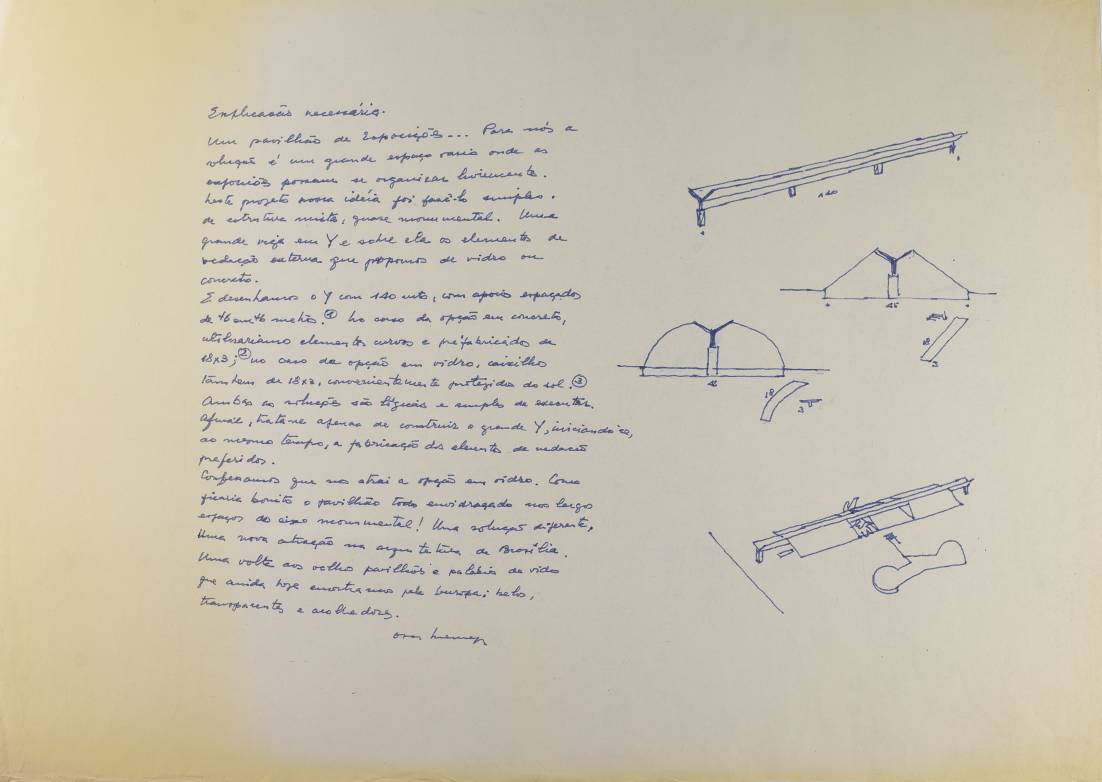 Explicação necessária.
Um pavilhão de Exposições... Para nós a
solução é um grande espaço vasio onde as
exposições possam se organizar livremente.
Neste projeto nossa idéia foi fazê-lo simples.
de estrutura mista, quase monumental. Uma
grande viga em Y e sobre ela os elementos de
vedação externa que propomos de vidro ou
concreto.
E desenhamos o Y com 140 mts, com apoios espaçados
de 46 em 46 metros. 1 No caso da opção em concreto,
utilisariamo elementos curvos e préfabricados de
18x3; 2 no caso da opção em vidro, caixilho
tambem de 18x3, convenientemente protegidos do sol. 3
Ambas as soluções são lógicas e simples de executar.
Afinal, trata-se apenas de construir o grande Y, iniciando-se,
ao mesmo tempo, a fabricação dos elementos de vedação
preferidos.
Confessamos que nos atrai a opção em vidro. Como
ficaria bonito o pavilhão todo envidraçado nos largos
espaços do eixo monumental! Uma solução diferente,
Uma nova atração na arquitetura de Brasília.
Uma volta aos velhos pavilhões e palácios de vidro
que ainda hoje encontramos pela Europa; belos,
transparentes e acolhedores.
Oscar Niemeyer
140
45
18
3
45
18
3